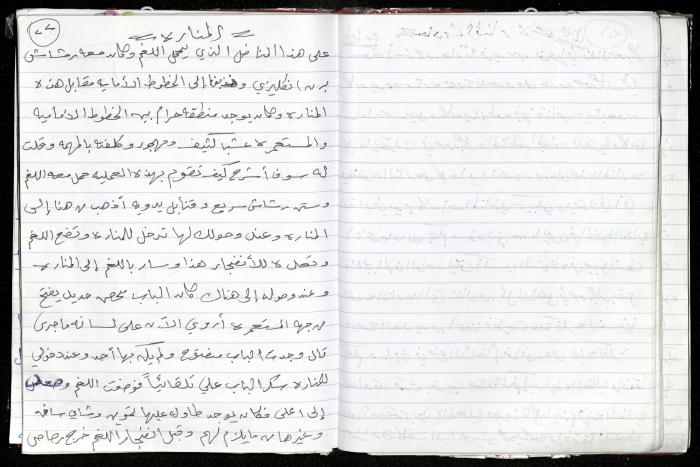 ٢٢
= المناره =
على هذا المناضل الذي يحمل اللغم وكان معه رشاش
برن إنكليزي وذهبنا إلى الخطوط الأماميه مقابل هذه
المناره وكان يوجد منطقه حرام بين الخطوط الاماميه
والمستعمره عشبها كثيف ومهجور وكلفته بالمهمه وقلت
له سوف أشرح كيف تقوم بهذه العمليه حمل معه اللغم
وستن رشاش سريع وقنابل يدويه أذهب من هنا إلى
المناره وعند وصولك لها تدخل للمناره وتضع اللغم
وتعد له للأنفجار هذا وسار باللغم إلى المناره
وعند وصوله إلى هناك كان الباب مصنوع حديد يفتح
من جهه المستعمره أروي الآن على لسانه ماجرى
قال وجدت الباب مفتوح ولم يكن بها أحد وعند دخولي
للمناره سكر الباب علي تلقائياً فوضعت اللغم وصعدت
إلى أعلى فكان يوجد طاوله عليها تموين وشاي ساخن
وغيرها من مايلزم لهم وقبل انفجار اللغم خرج رصاص